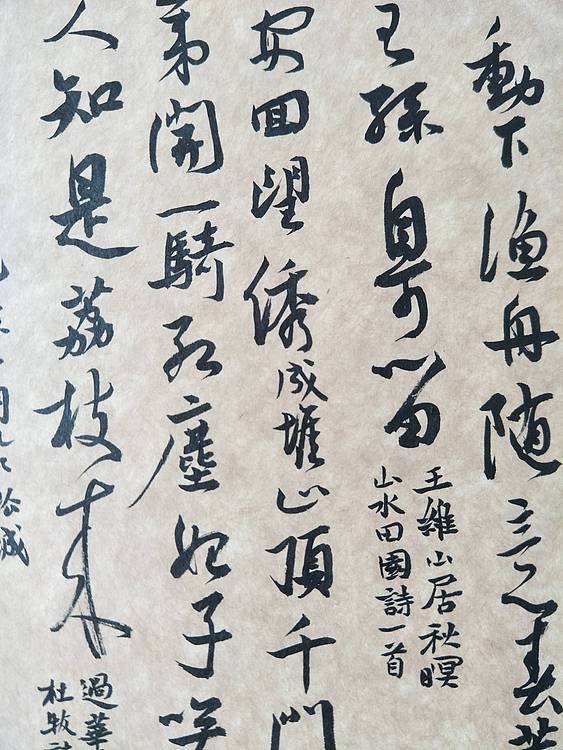 動下漁舟随意春
王孫自可留
王維山居秋暝
山水田園詩一首
安回望綉成堆山頂千門
第開一騎紅塵妃子笑
人知是荔枝来
過華
杜牧